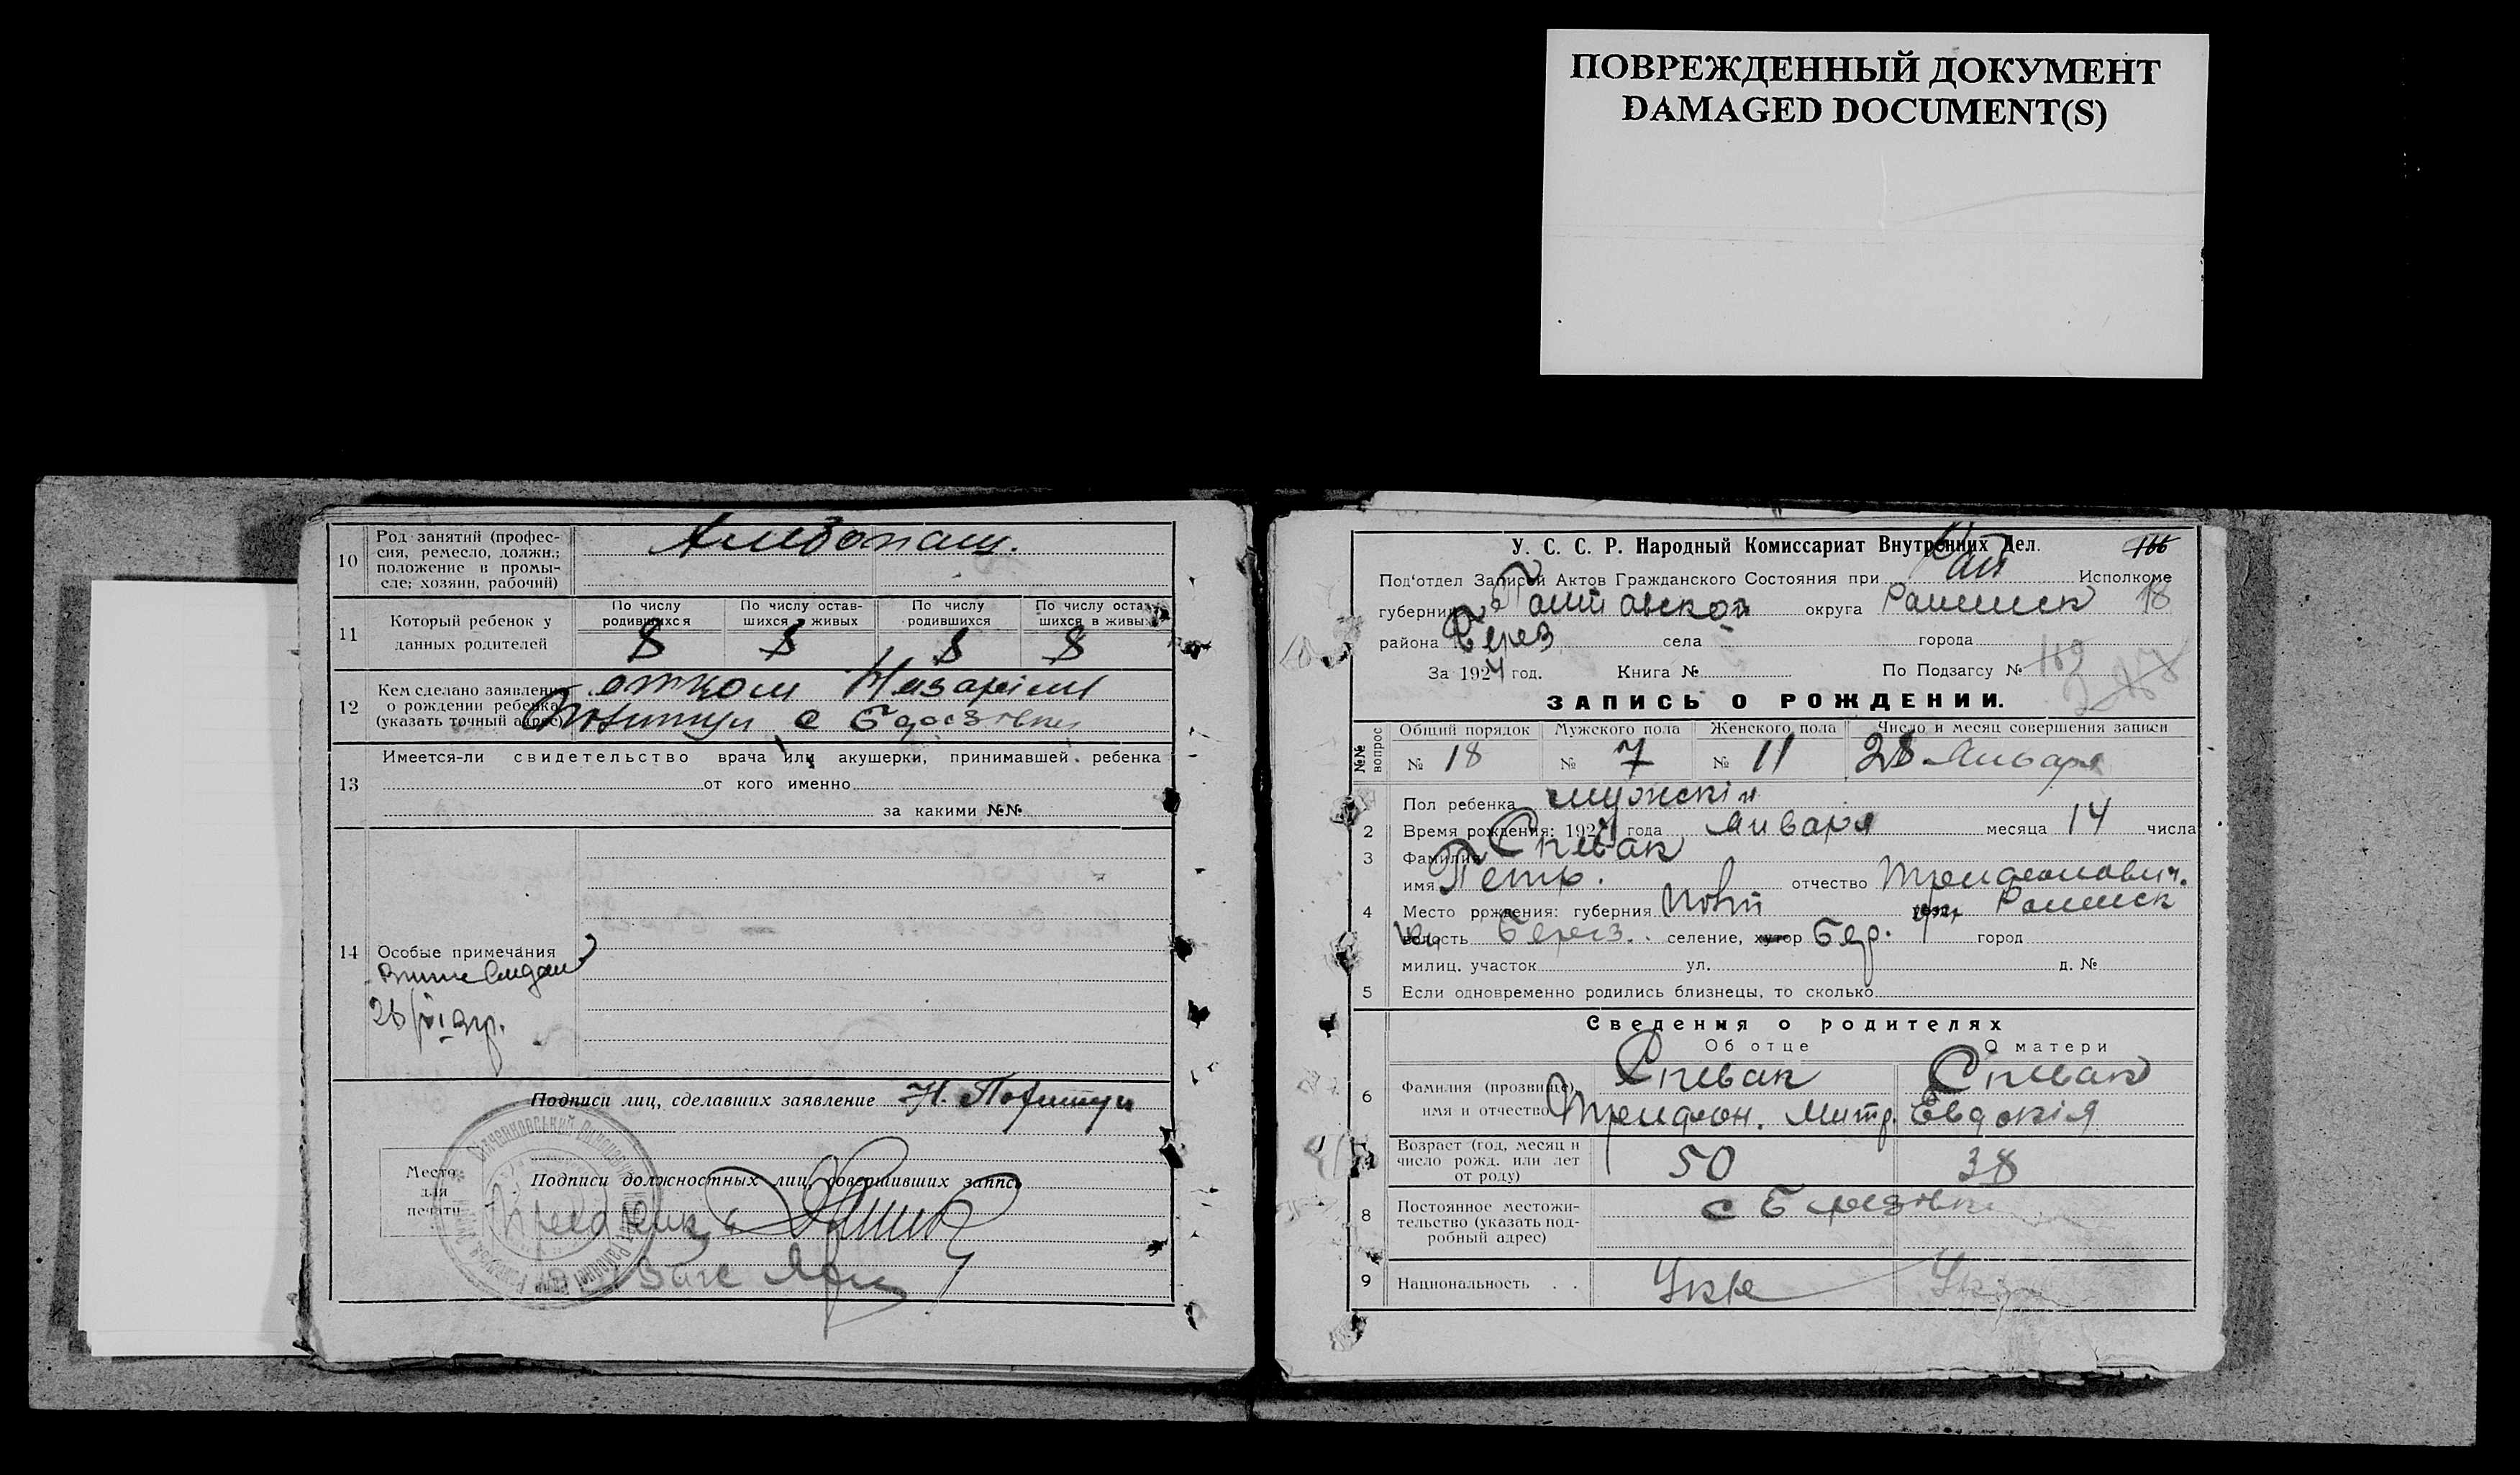 ПОВРЕЖДЕННЫЙ ДОКУМЕНТ
DAMAGED DOCUMENT(S)
10 Род занятий (профес-
сия, ремесло, должн.;
положение в промы-
сле; хозяин, рабочий)
11 Который ребенок у
данных родителей
По числу родившихся
По числу остав-
шихся в живых
По числу родившихся
По числу остав-
шихся в живых
8 8 8 8
12 Кем сделано заявление
о рождении ребенка
(указать точный адрес)
отцом Назарiем
13 Имеется-ли свидетельство врача или акушерки, принимавшей ребенка
от кого именно
за какими №№
14 Особые примечания
Подписи лиц, сделавших заявление Н.
Место
для
печати
Подписи должностных лиц, совершивших запись
У. С. С. Р. Народный Комиссариат Внутренних Дел. 166
Под'отдел Записей Актов Гражданского Состояния при Рай Исполкоме
губернии Полтавской округа Роменск 18
района Берез села города
За 1924 год. Книга № По Подзагсу № 169
ЗАПИСЬ О РОЖДЕНИИ.
№№ вопрос
Общий порядок Мужского пола Женского пола Число и месяц совершения записи
№ 18 № 7 № 11 28 Января
1 Пол ребенка мужскiй
2 Время рождения: 1924 года Января месяца 14 числа
3 Фамилия Спивак
имя Петр. отчество Трифонович.
4 Место рождения: губерния Полт Роменск
волость Берез. селение, хутор Бер. город
милиц. участок ул. д. №
5 Если одновременно родились близнецы, то сколько
Сведения о родителях
Об отце О матери
6 Фамилия (прозвище),
имя и отчество
Спивак Спивак
Трифон. Митр. Евдокiя
7 Возраст (год, месяц и
число рожд. или лет
от роду)
50 38
8 Постоянное местожи-
тельство (указать под-
робный адрес)
с Березовк
9 Национальность . .
Укр Укр